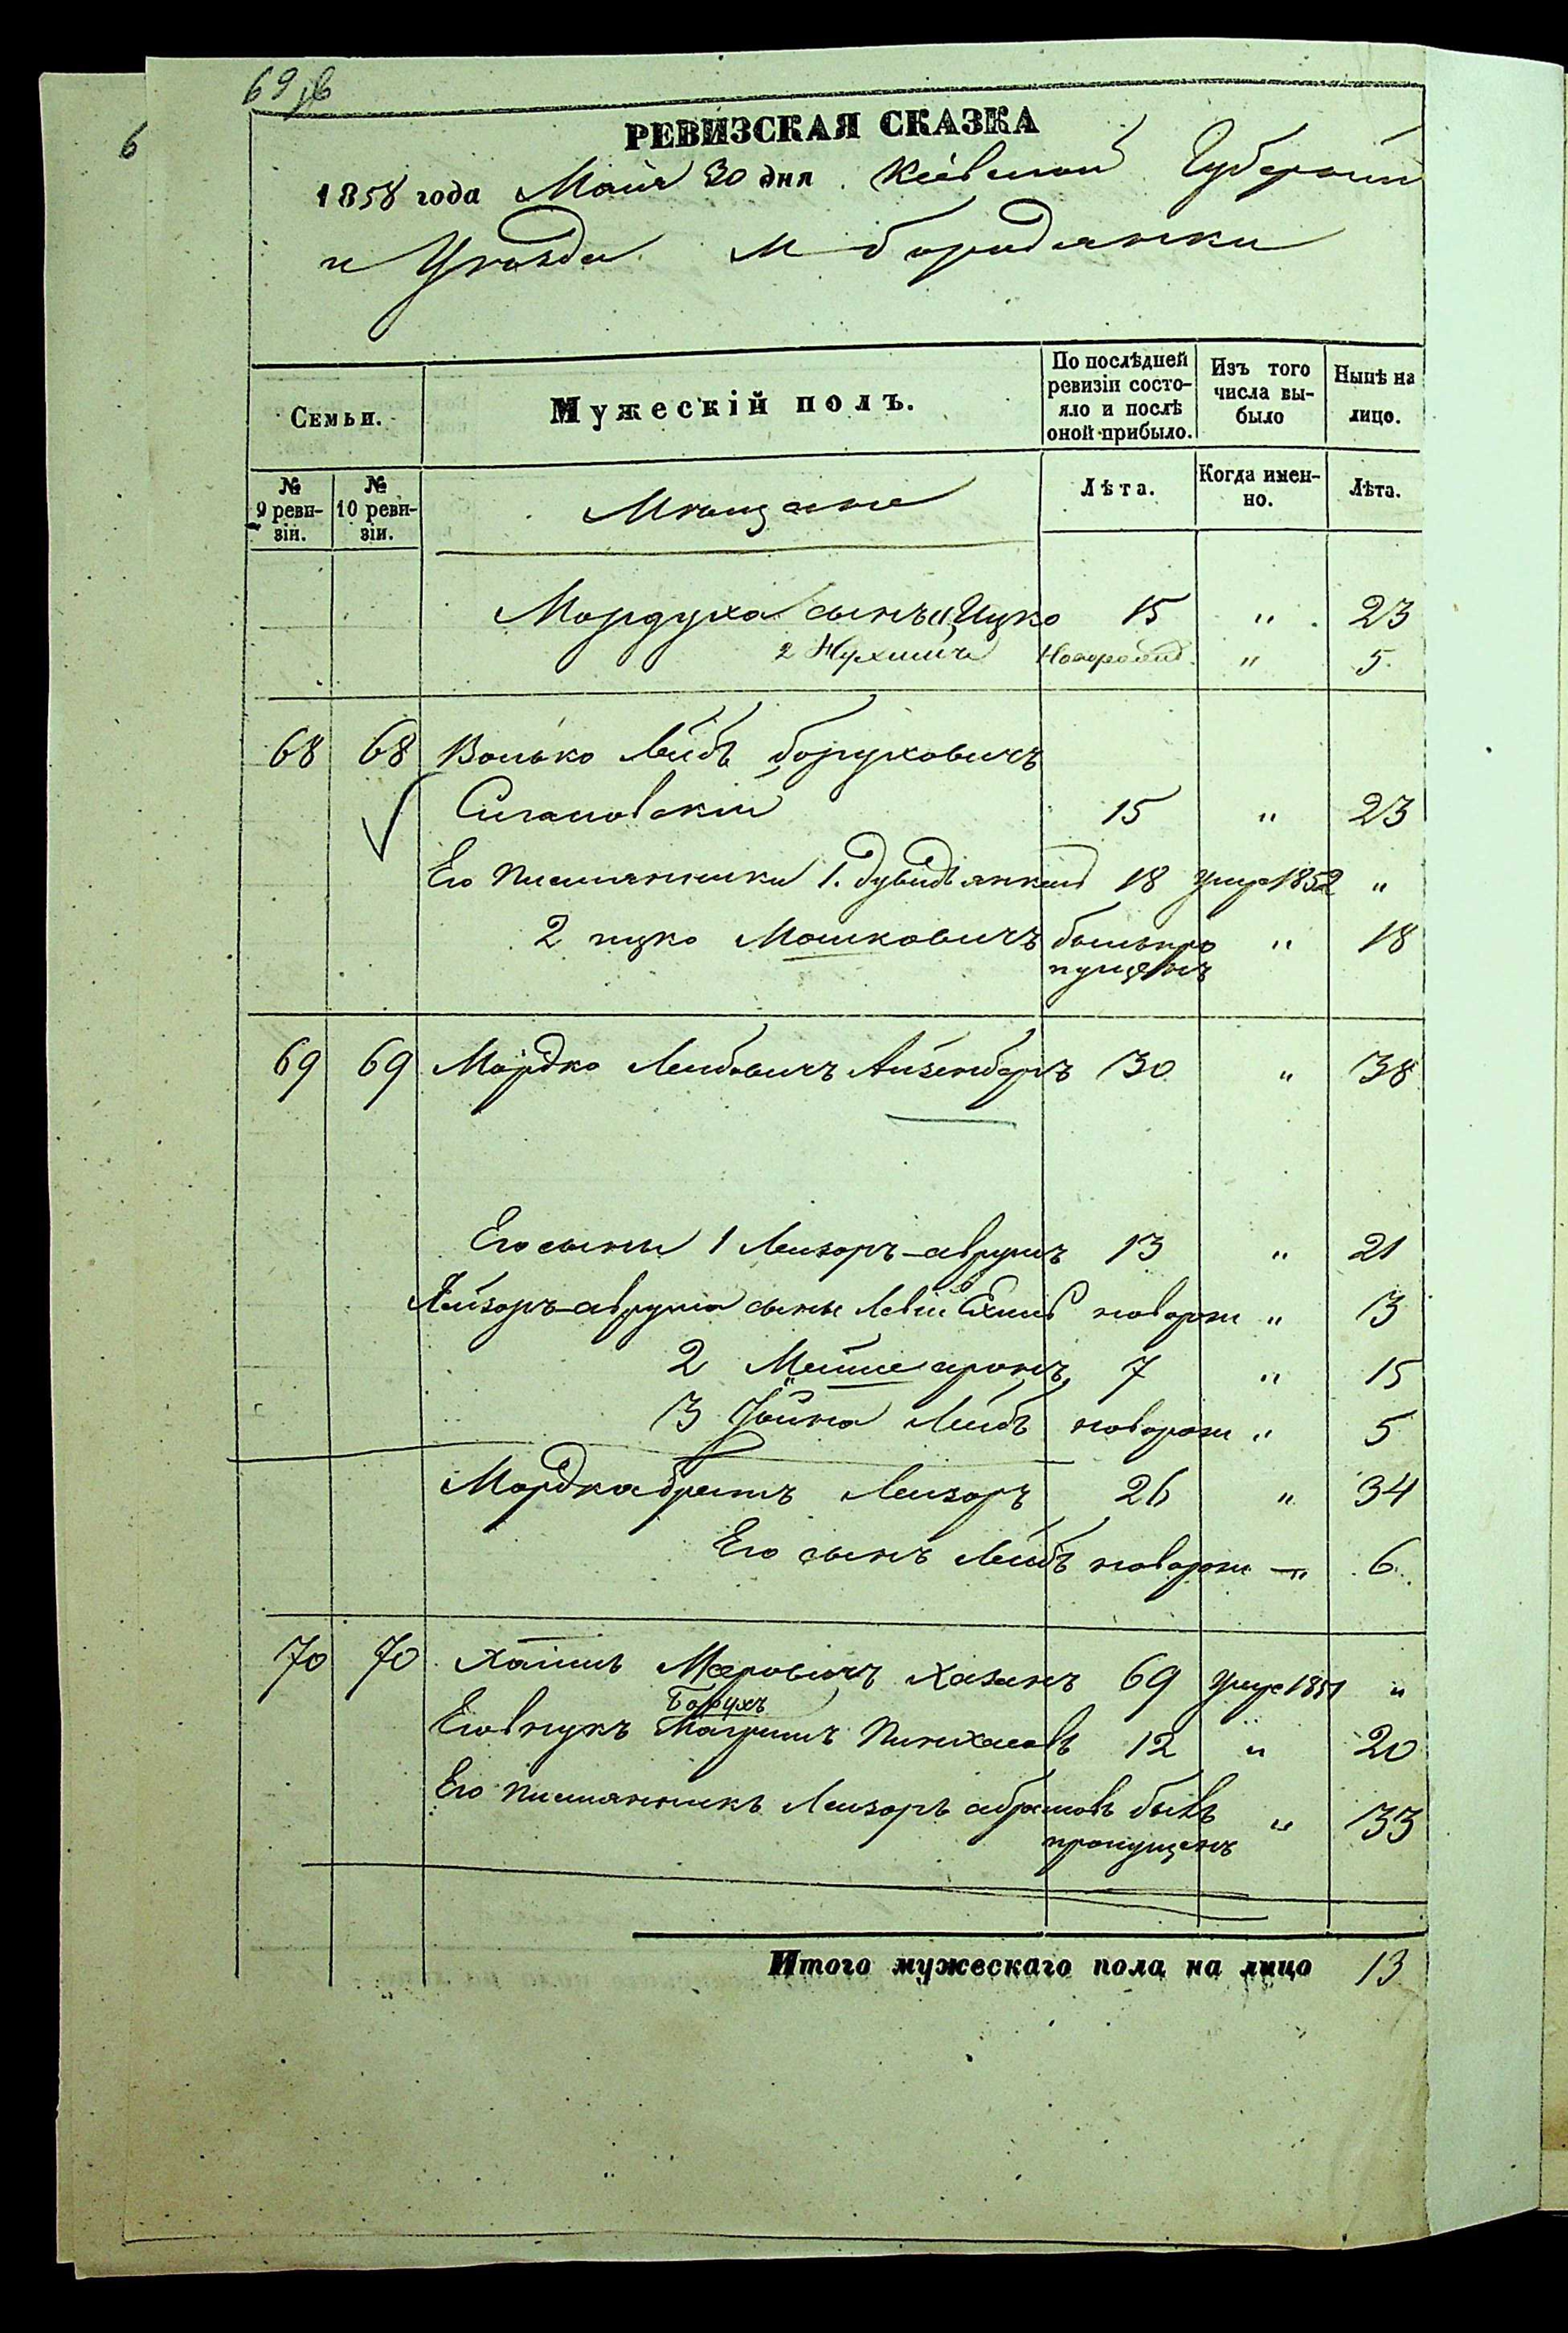 69
6
РЕВИЗСКАЯ СКАЗКА
1858 года Мая 30 дня. Кіевской Губерніи
и Уѣзда м бородянки
Семьи.
Мужескій полъ.
По послѣдней ревизіи состояло и послѣ оной прибыло.
Изъ того числа выбыло
Нынѣ на лицо.
№ 9 ревизіи.
№ 10 ревизіи.
Мѣщане
Лѣта.
Когда именно.
Лѣта.
Мордуха сынъ 1 Ицко 15 " 23
2 Нухимъ Новорожд " 5
68 68 Волько Лейбъ боруховичъ
15 " 23
Его племянники 1. дувидъ янкель 18 умре 1852 "
2 ицко Мошковичъ былъ про " 18
пущенъ
69 69 Мордко Лейбовичъ Айзенбергъ 30 " 38
Его сыны 1 Лейзоръ-аврумъ 13 " 21
Лейзоръ-аврума сынъ Левій новорож " 3
2 аронъ 7 " 15
3 Лейбъ новорож " 5
Мордка братъ Лейзоръ 26 " 34
Его сынъ Лейбъ новорож " 6
70 70 Хаимъ Меровичъ Хазанъ 69 умре 1851 "
Борухъ
Его внукъ Пинхасовъ 12 " 20
Его племянникъ Лейзоръ абрамовъ былъ " 33
пропущенъ
Итого мужескаго пола на лицо 13